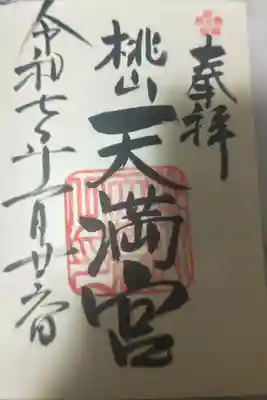 奉拝
桃山天満宮
令和七年十一月廿六日